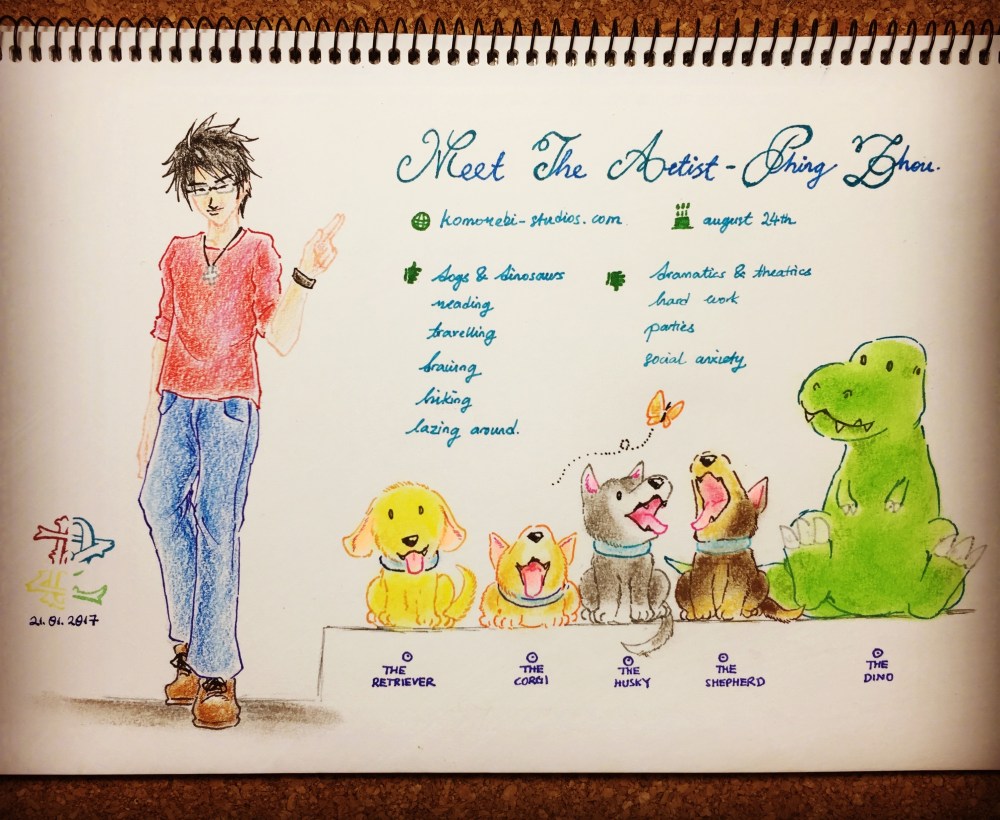 Meet The Artist - Phing Zhou.
komorebi-studios.com
august 24th
dogs & dinosaurs
reading
travelling
hiking
lazing around.
dramatics & theatrics
hard work
parties
social anxiety
21.01.2017
THE
RETRIEVER
THE
CORGI
THE
HUSKY
THE
SHEPHERD
THE
DINO